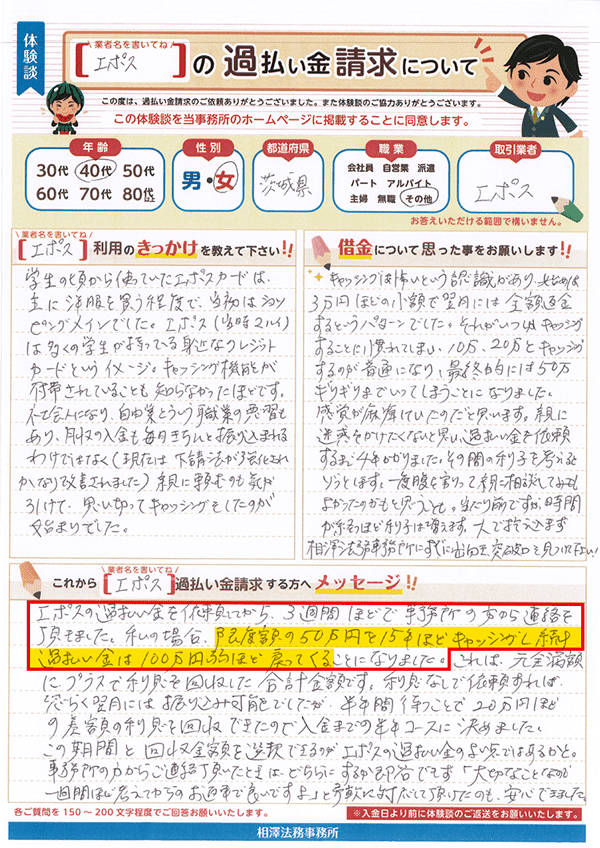 体験談
業者名を書いてね
[エポス]の過払い金請求について
この度は、過払い金請求のご依頼ありがとうございました。また体験談のご協力ありがとうございます。
この体験談を当事務所のホームページに掲載することに同意します。
年齢
30代 40代 50代
60代 70代 80代以上
性別
男・女
都道府県
茨城県
職業
会社員 自営業 派遣
パート アルバイト
主婦 無職 その他
取引業者
エポス
お答えいただける範囲で構いません。
業者名を書いてね
[エポス]利用のきっかけを教えて下さい!!
学生の頃から使っていたエポスカードは、
主に洋服を買う程度で、当初はショッ
ピングメインでした。エポス(当時マルイ)
は多くの学生が持っている身近なクレジット
カードというイメージ。キャッシング機能が
付帯されていることも知らなかったほどです。
社会人になり、自由業という職業の悪習も
あり、月収の入金も毎月きちんと振り込まれる
わけではなく(現在は下請法が強化され
かなり改善されました)親に頼むのも気が
引けて、思い切ってキャッシングをしたのが
始まりでした。
借金について思った事をお願いします!!
キャッシングは怖いという認識があり、始めは
3万円ほどの小額で翌月には全額返金
するというパターンでした。それがいつしかキャッシング
することに慣れてしまい、10万、20万とキャッシング
するのが普通になり、最終的には50万
ギリギリまでいってしまうことになりました。
感覚が麻痺していたのだと思います。親に
迷惑をかけたくないと思い、過払い金を依頼
するまで4年かかりました。その間の利子を考えると
ゾッとします。一度腹を割って親に相談してみても
よかったのかもと思うことも。当たり前ですが、時間
が経るほど利子は増えます。一人で抱え込まず
相澤法務事務所にすぐに出向き突破口を見つけて下さい!
業者名を書いてね
これから[エポス]過払い金請求する方へメッセージ!!
エポスの過払い金を依頼してから、3週間ほどで事務所の方から連絡を
頂きました。私の場合、限度額の50万円を15年ほどキャッシングし続け
過払い金は100万円弱ほど戻ってくることになりました。これは、元金満額
にプラスで利息を回収した合計金額です。利息なしで依頼すれば、
恐らく翌月には振り込み可能でしたが、半年間待つことで20万円ほど
の差額の利息を回収できたので入金までの半年コースに決めました。
この期間と回収金額を選択できるのがエポスの過払い金の良い所ではあるかと。
事務所の方からご連絡頂いたときは、どちらにするか即答でき
ず「大切なことなので
一週間ほど考えてからのお返事で良いですよ」と柔軟に対応して頂けたのも、安心できました。
各ご質問を150～200文字程度でご回答お願いいたします。
※入金日より前に体験談のご返送をお願いいたします。
相澤法務事務所